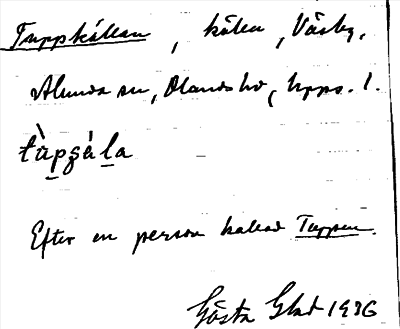 Tuppkällan, källa, Väsby,
Alunda sn, Olands hd, Upps. l.
tùpɡäla
Efter en person kallad Tuppen.
Gösta Glad 1936